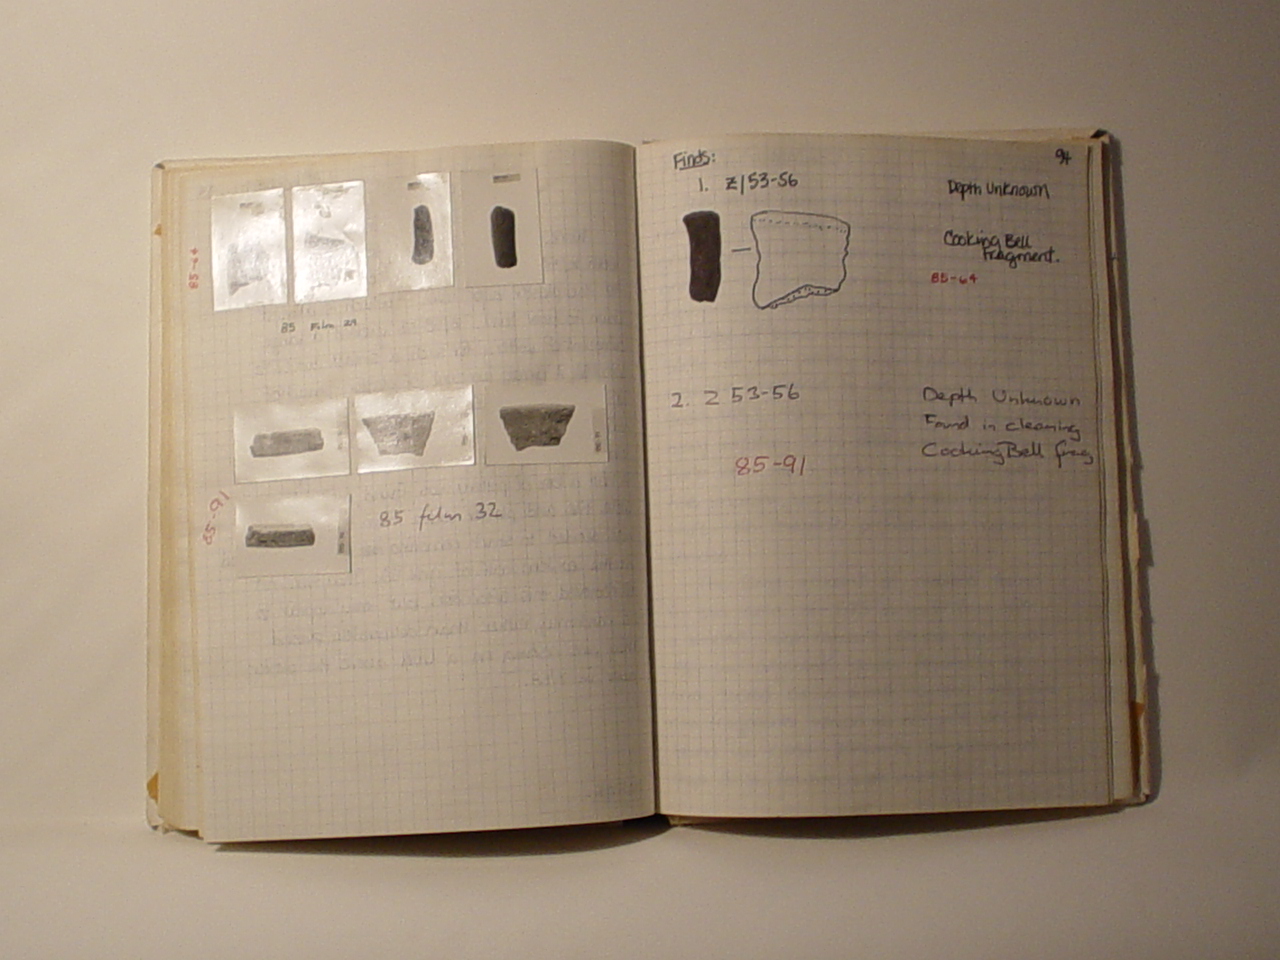 85-64
85 Film 29
85-91
85 film 32
Finds:
94
1. Z/53-56
Depth Unknown
Cooking Bell
Fragment.
85-64
2. Z 53-56
Depth Unknown
Found in cleaning
Cooking Bell frag
85-91